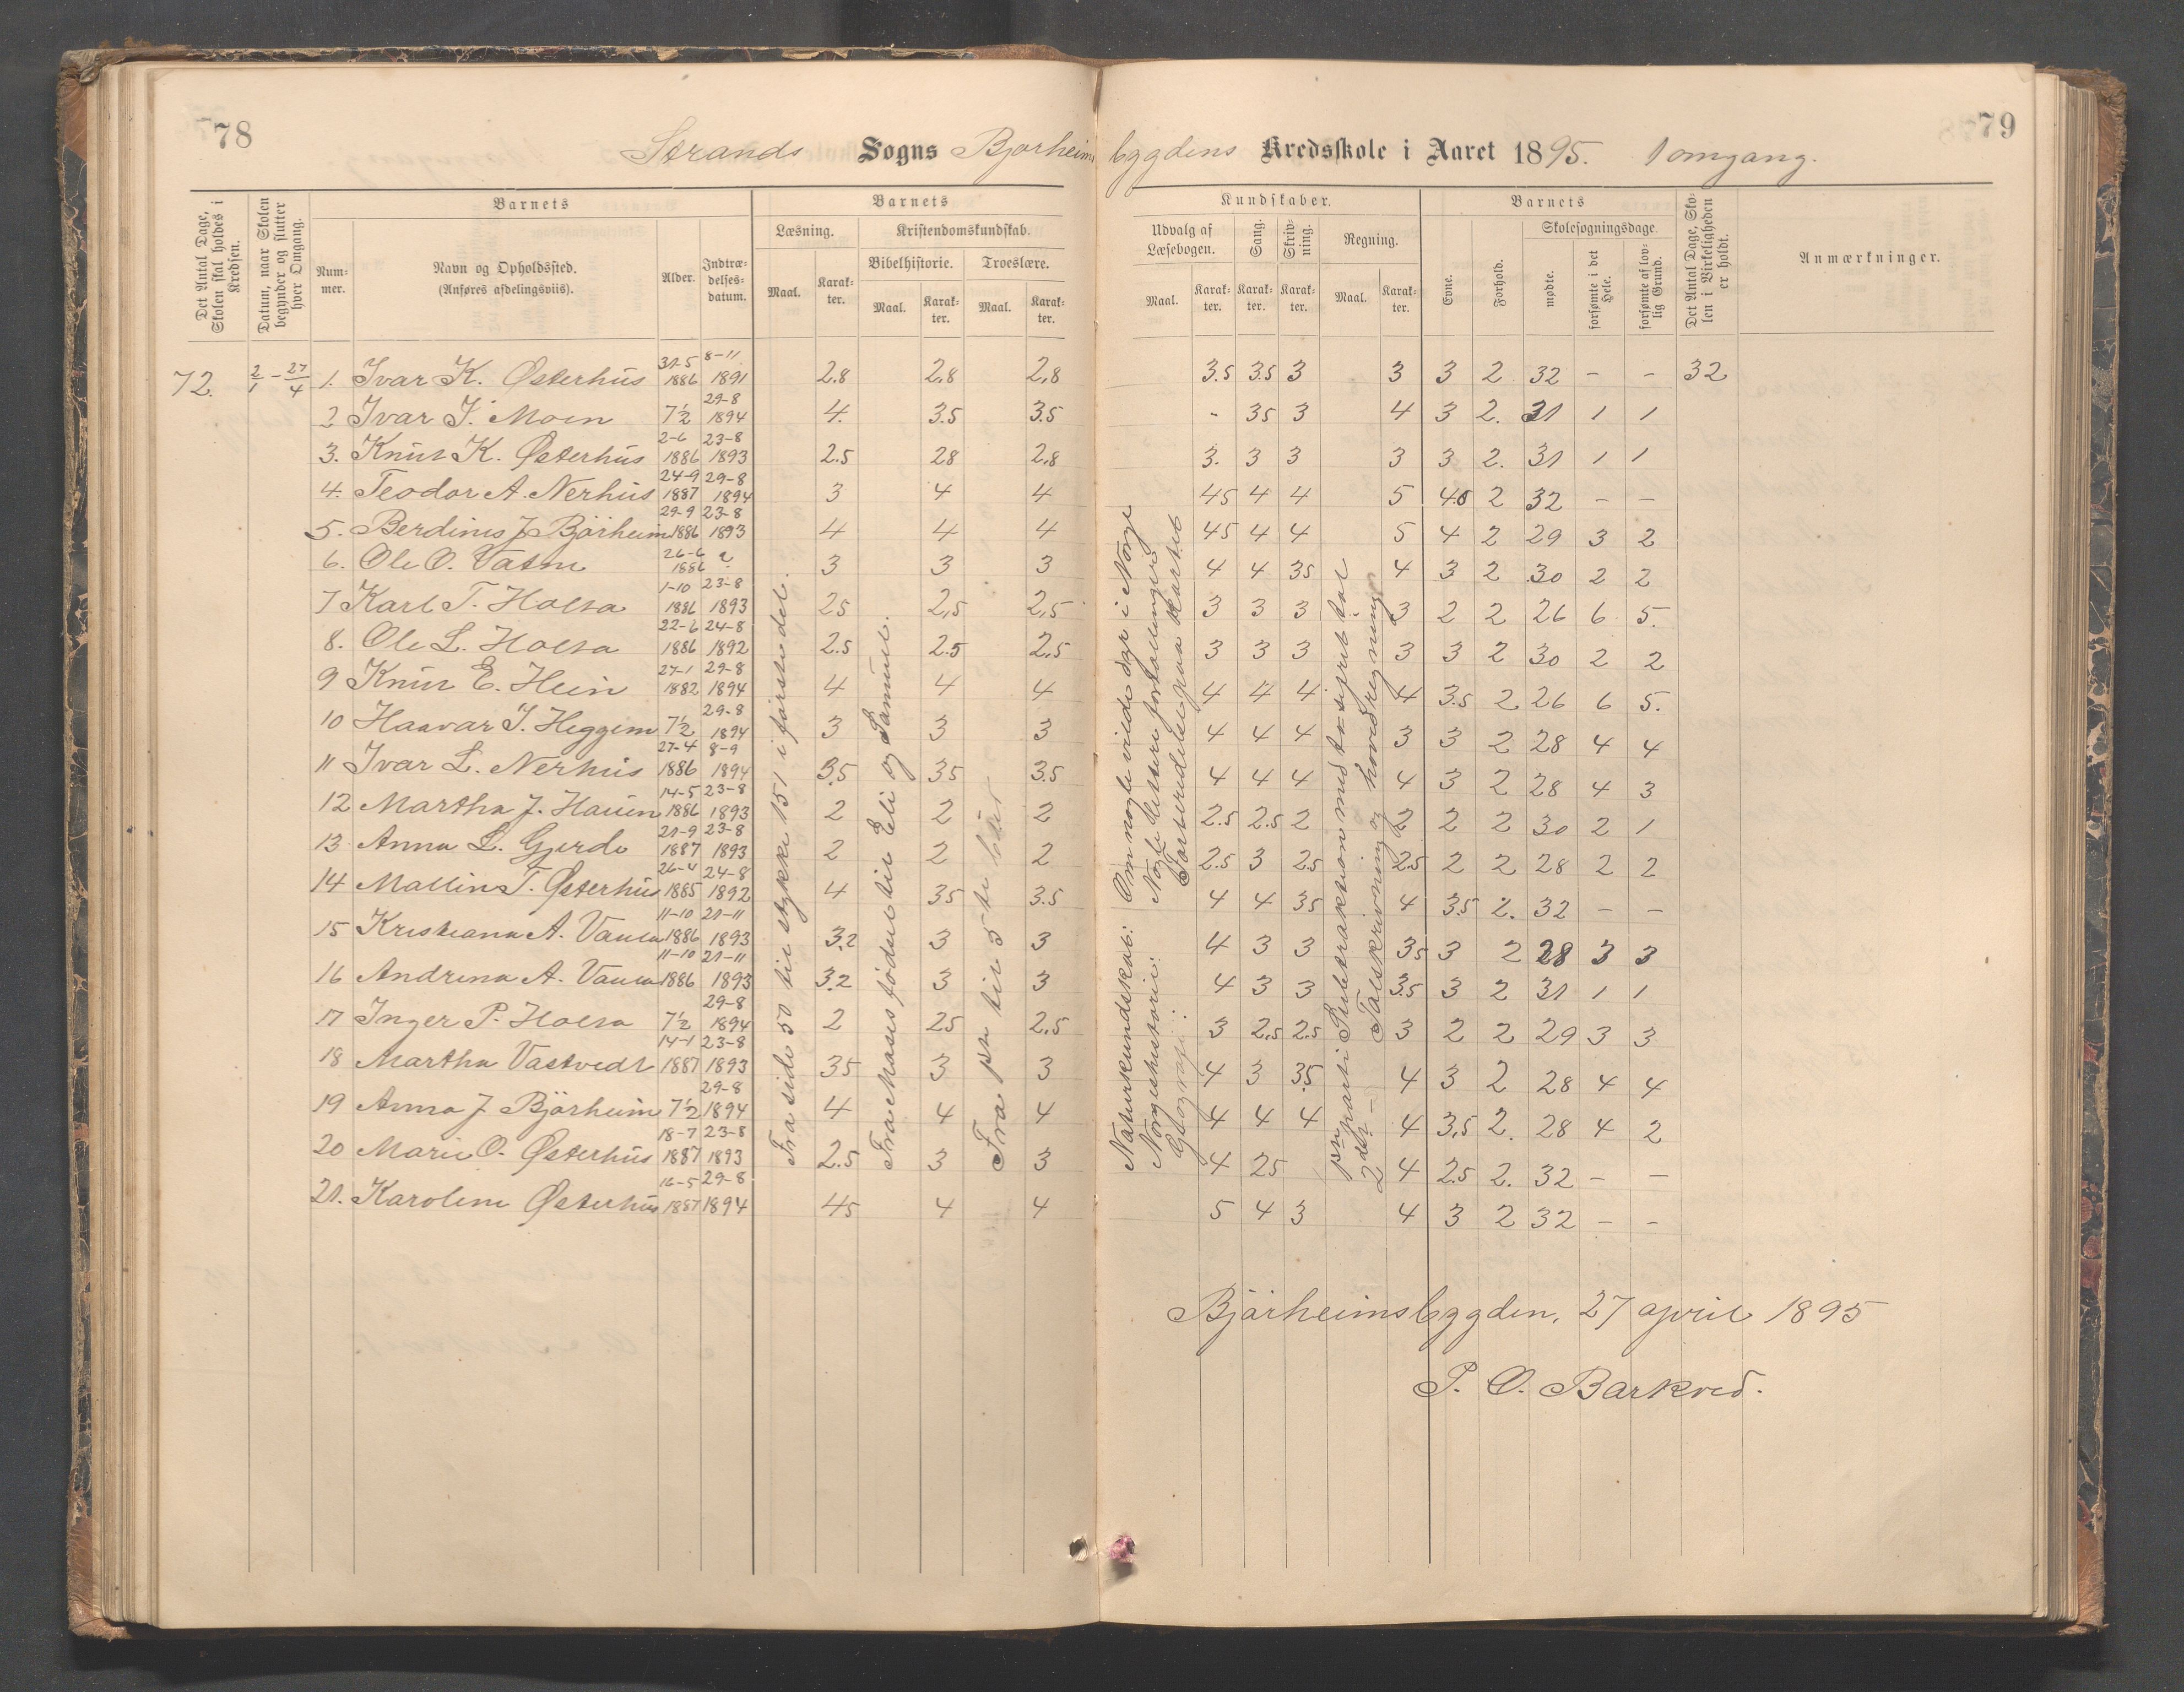 78
Strands Sogns Bjørheims
bygdens Kredsskole i Aaret 1895. 1 omgang.
79
Det Antal Dage, Skolen skal holdes i Kredsen.
Datum, naar Skolen begynder og slutter hver Omgang.
Barnets
Nummer.
Navn og Opholdssted.
(Anføres afdelingsviis).
Alder.
Indtrædelses-datum.
Barnets
Læsning.
Maal.
Karakter.
Kristendomskundskab.
Bibelhistorie.
Maal.
Karakter.
Troeslære.
Maal.
Karakter.
Kundskaber.
Udvalg af Læsebogen.
Maal.
Karakter.
Sang.
Karakter.
Skrivning.
Karakter.
Regning.
Maal.
Karakter.
Barnets
Evne.
Forhold.
Skolesøgningsdage.
mødte.
forsømte i det Hele.
forsømte af lovlig Grund.
Det Antal Dage, Skolen i Virkeligheden er holdt.
Anmærkninger.
72. 2/1 - 27/4 1. Ivar K. Østerhus 31-5 1886 8-11 1891 2.8 2.8 2,8 3.5 3.5 3 3 3 2 32 - - 32
2 Ivar J. Moen 7½ 29-8 1894 4. 3.5 3.5 - 35 3 4 3 2. 31 1 1
3. Knut K. Østerhus 2-6 1886 23-8 1893 2.5 28 2,8 3. 3 3 3 3 2. 31 1 1
4. Teodor A. Nerhus 24-9 1887 29-8 1894 3 4 4 45 4 4 5 4.5 2 32 - -
5. Berdines J Bjørheim 29-9 1886 23-8 1893 4 4 4 45 4 4 5 4 2 29 3 2
6. Ole O. Vatne 26-6 1886 ? 3 3 3 4 4 35 4 3 2 30 2 2
7 Karl T. Holta 1-10 1886 23-8 1893 25 2,5 2,5 3 3 3 3 2 2 26 6 5.
8. Ole L. Holta 22-6 1886 24-8 1892 2.5 2.5 2,5 3 3 3 3 3 2 30 2 2
9 Knut E. Hein 27-1 1882 29-8 1894 4 4 4 4 4 4. 4 3.5 2 26 6 5.
10 Haavar I. Heggem 7½ 29-8 1894 3 3 3 4 4 4 3 3 2 28 4 4
11 Ivar L. Nerhus 27-4 1886 8-9 1894 3.5 35 3.5 4 4 4 4 3 2 28 4 3
12 Martha J. Hauen 14-5 1886 23-8 1893 2 2 2 2.5 2.5 2 2 2 2 30 2 1
13 Anna L. Gjerde 21-9 1887 23-8 1893 2 2 2 2.5 3 2.5 2.5 2 2 28 2 2
14 Mallin T. Østerhus 26-4 1885 24-8 1892 4 35 3.5 4 4 35 4 3.5 2. 32 - -
15 Kristiana A. Vaula 11-10 1886 21-11 1893 3.2 3 3 4 3 3 35 3 2 28 3 3
16 Andrina A. Vaula 11-10 1886 21-11 1893 3.2 3 3 4 3 3 3.5 3 2 31 1 1
17 Inger P. Holta 7½ 29-8 1894 2 25 2,5 3 2,5 2.5 3 2 2 29 3 3
18 Martha Vastvedt 14-1 1887 23-8 1893 35 3 3 4 3 3.5 4 3 2 28 4 4
19 Anna J Bjørheim 7½ 29-8 1894 4 4 4 4 4 4 4 3,5 2. 28 4 2
20 Marie O. Østerhus 18-7 1887 23-8 1893 2.5 3 3 4 25 4 2.5 2. 32 - -
21. Karoline Østerhus 16-5 1887 29-8 1894 45 4 4 5 4 3 4 3 2 32 - -
Fra side 50 til stykke 151 i første del.
Fra Moses fødsel til Eli og Samuel.
Fra pn til 5te bud
Naturkundskab: Om nogle vilde dyr i Norge
Norgeshistorie: Nogle lettere fortællinger
Geografi: Farveinddeling paa kartet
pn parti Subtraktion med to-sifret tal
2det - Talskrivning og hovedregning
Bjørheimsbygden, 27 april 1895
P. O. Barkved.